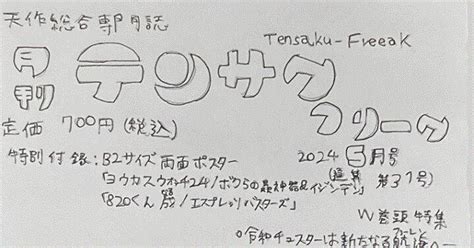 天作総合専門誌
Tensaku-Freeak
月刊
テンサク
フリーク
定価 700円(税込)
2024 5月号
(通算 第37号)
特別付録:B2サイズ両面ポスター
「ヨウカスウォッチ424/ボクらの
「820くん /エスプレッソバスターズ」
W巻頭特集
◎令和チュスターは新たなる へ―